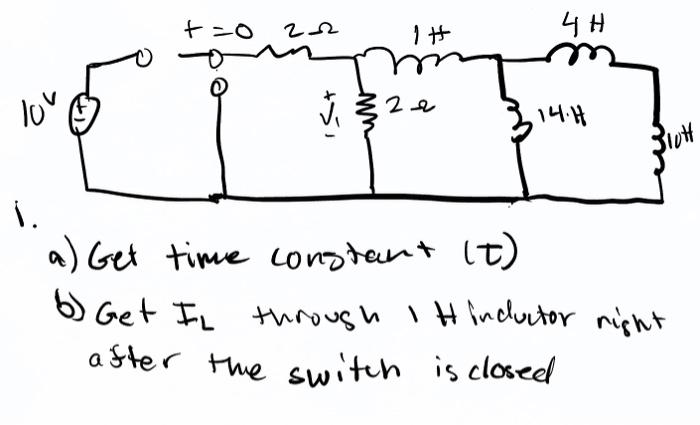 t=0 2Ω 1H 4H
10V + - + V₁ - 2Ω 14H 10H
1.
a) Get time constant (τ)
b) Get IL through 1 H inductor right
after the switch is closed